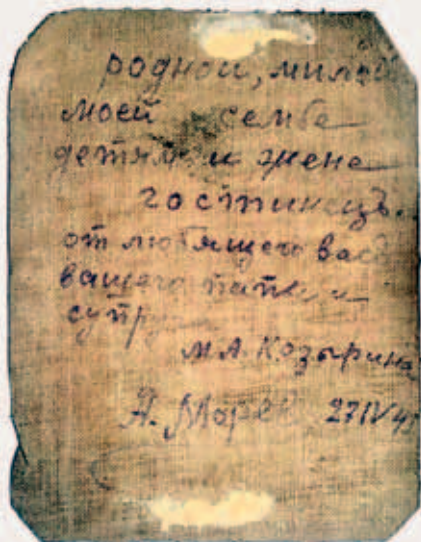 родной, милой
моей семье
детям и жене
гостинецъ..
от любящего вас
вашего папы и
М.А. Козырина
А. 27 IV 4